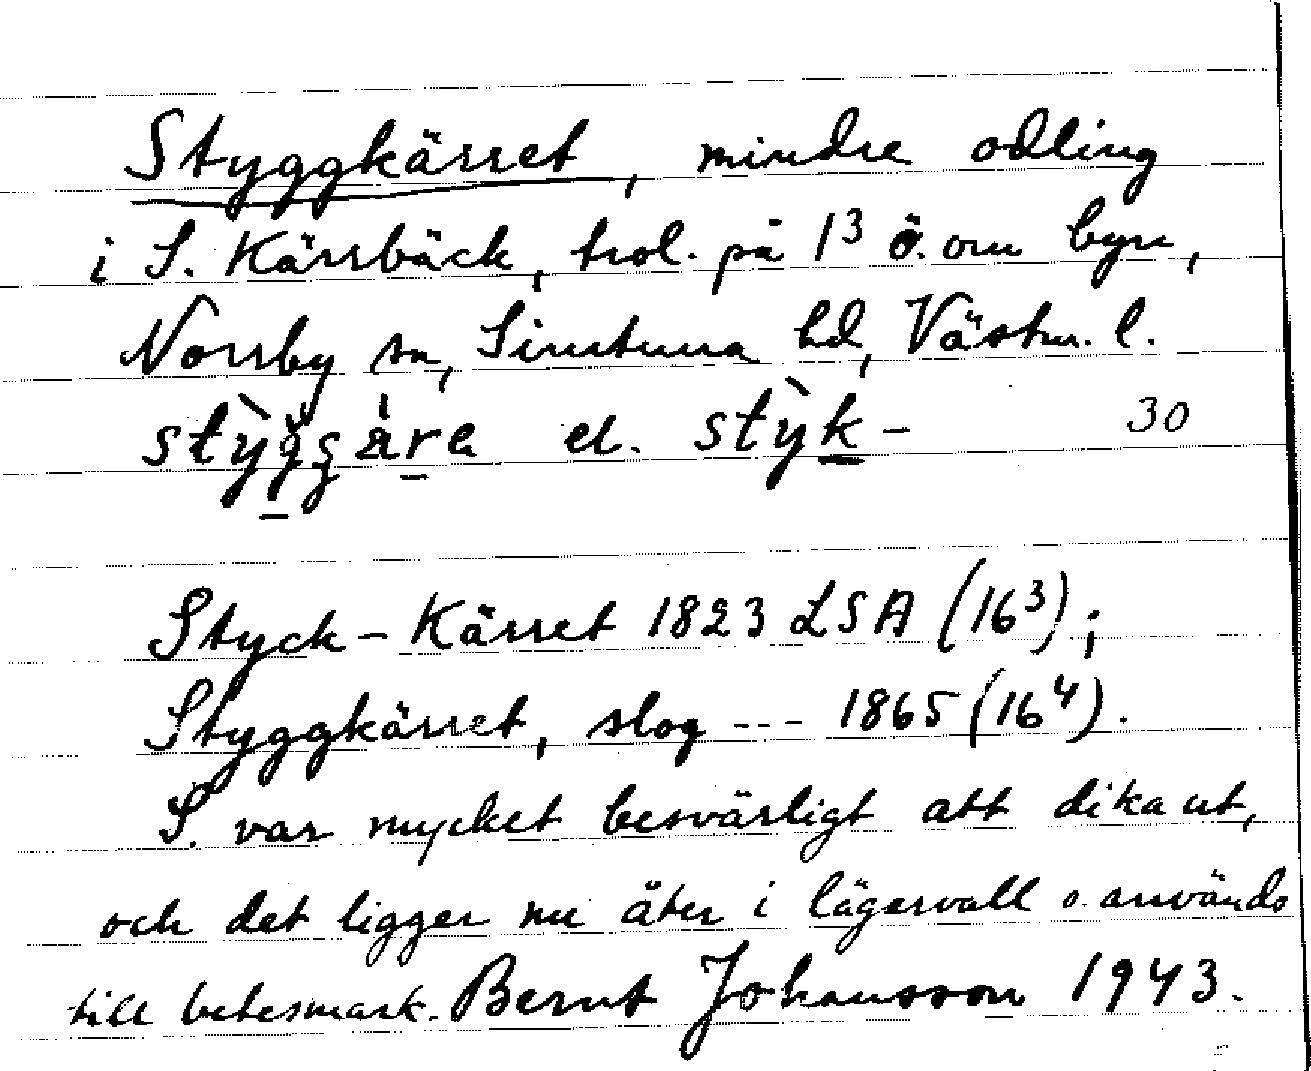 Styggkärret, mindre odling
i S. Kärrbäck, trol. på 1³ ö. om byn,
Norrby sn, Simtuna hd, Västm. l.
stỳg̀gära el. stỳk- 30
Styck-Kärret 1823 LSA (16³);
Styggkärret, slog --- 1865 (16⁴).
S. var mycket besvärligt att dika ut,
och det ligger nu åter i lägervall o. används
till betesmark. Bernt Johansson 1943.